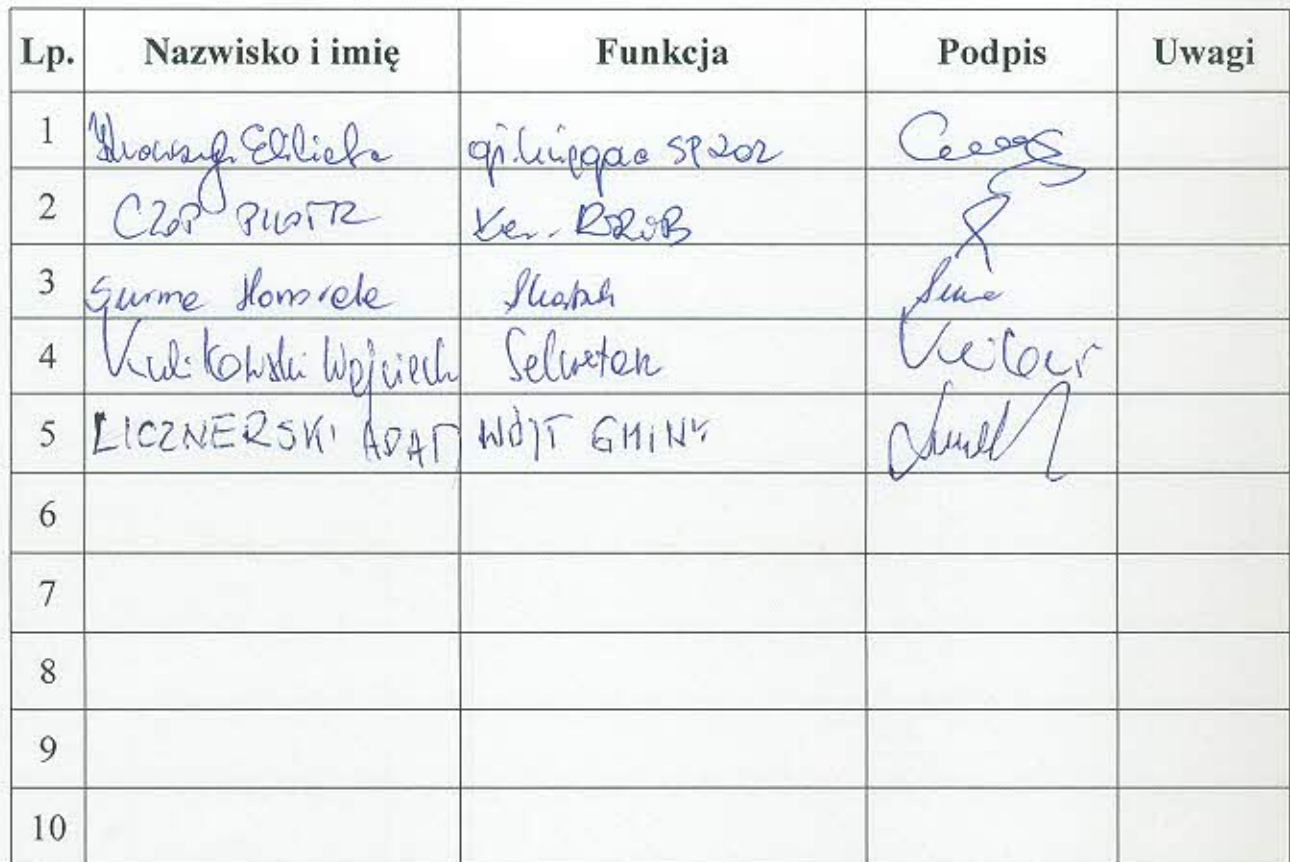 Lp. Nazwisko i imię Funkcja Podpis Uwagi
1 Elżbieta gł. księgowa SPZOZ
2 CZOP PIOTR Kier.
3 Surma Honorata Skarbnik
4 Kulikowski Wojciech Sekretarz
5 LICZNERSKI ADAM WÓJT GMINY
6
7
8
9
10